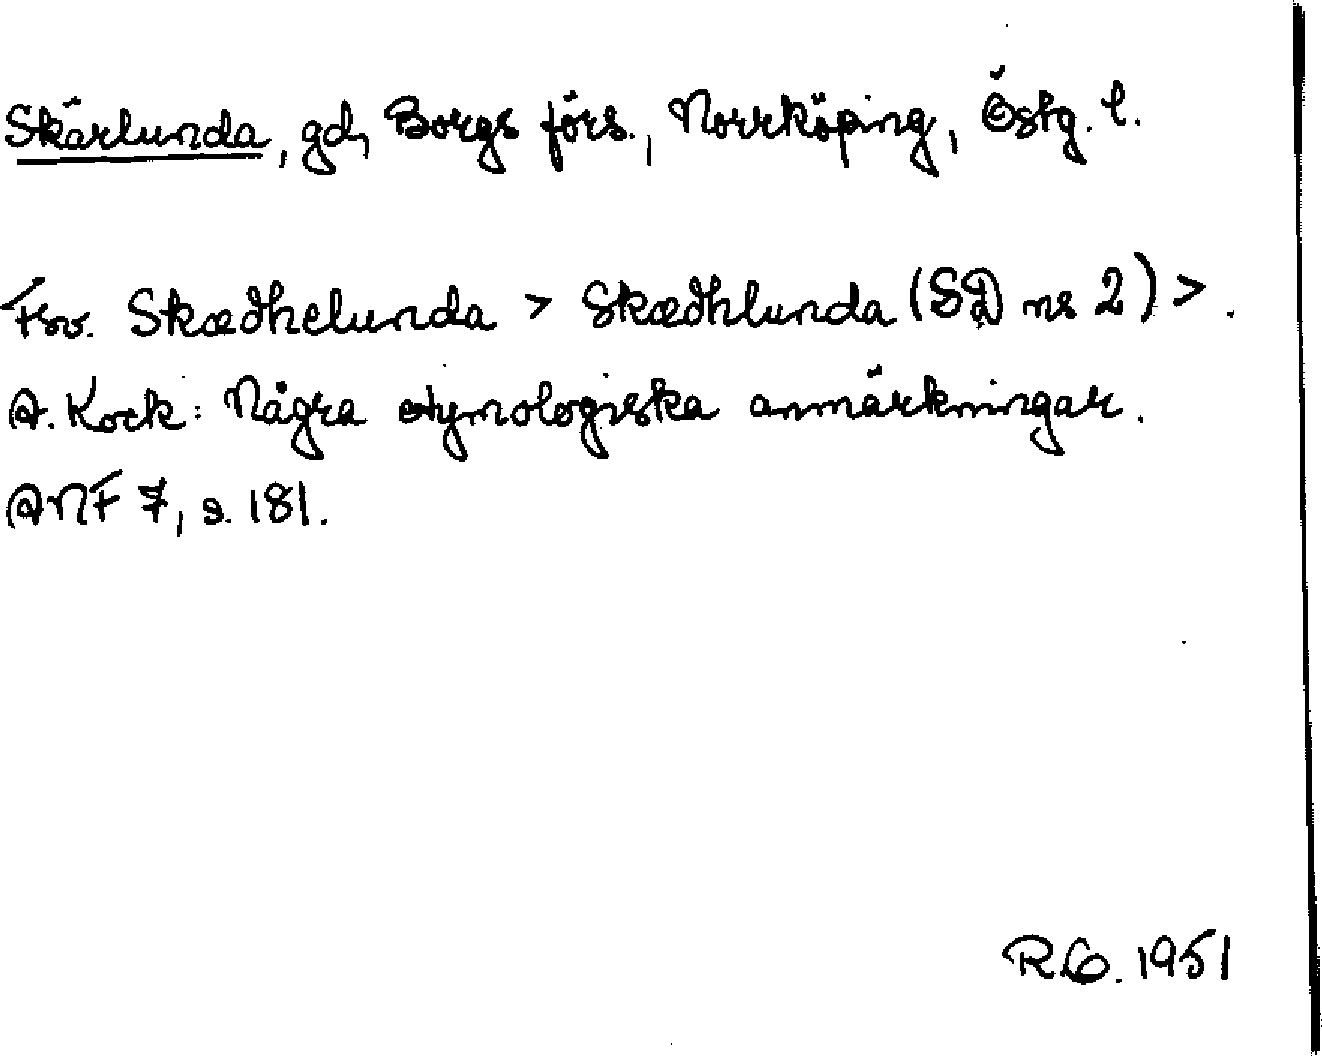 Skärlunda, gd, Borgs förs., Norrköping, Östg. l.
Fsv. Skædhelunda > Skædhlunda (SD nr 2) > .
A. Kock: Några etymologiska anmärkningar.
ANF 7, s. 181.
1951